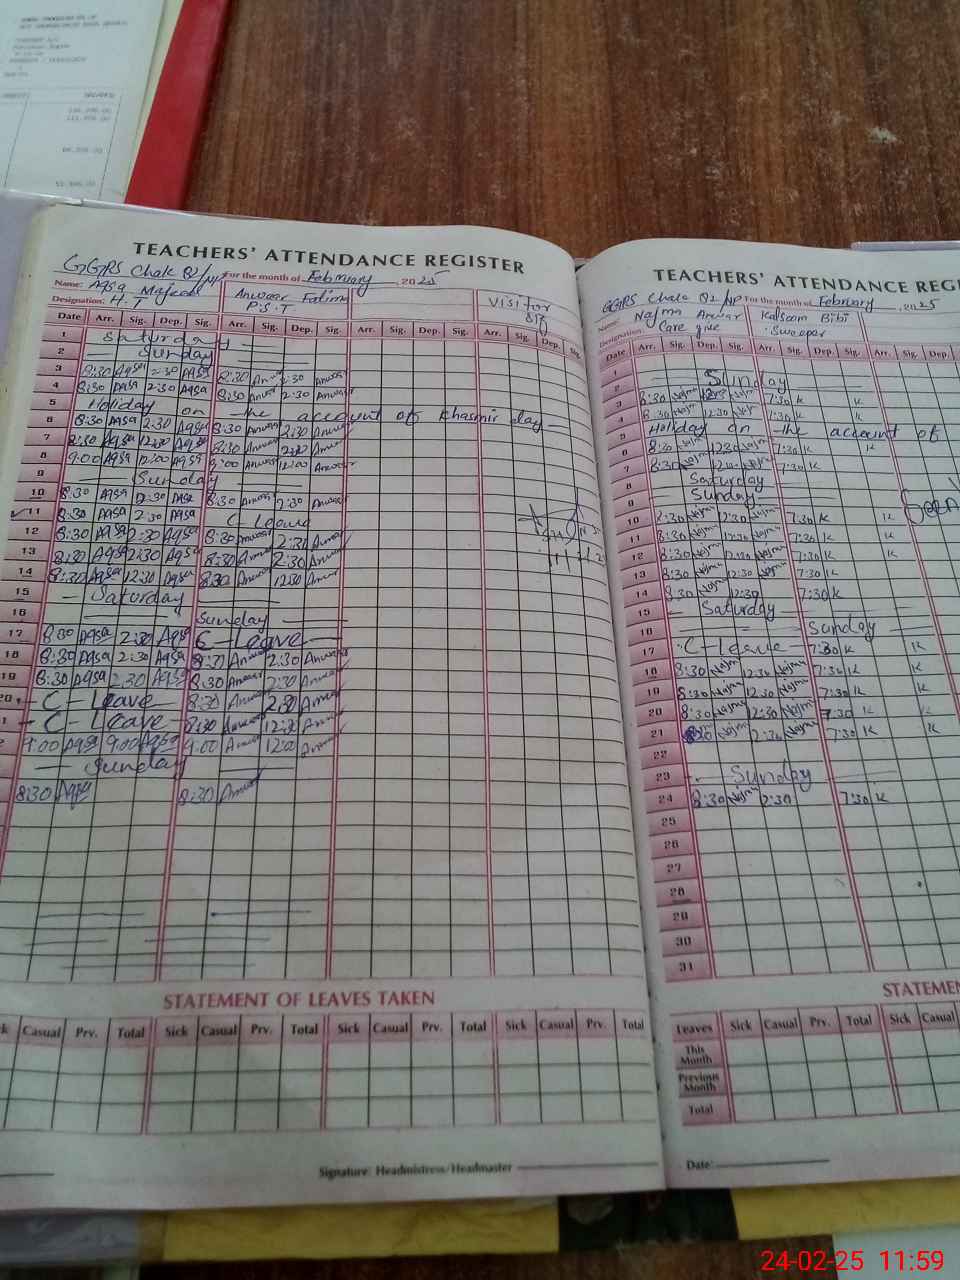 TEACHERS' ATTENDANCE REGISTER
GGPS Chak 92/NP For the month of February, 2025
Name: Aqsa Majeed Anwaar Fatima Visitor
Designation: H.T P.S.T Sig
Date Arr. Sig. Dep. Sig. Arr. Sig. Dep. Sig. Arr. Sig. Dep. Sig. Arr. Sig. Dep. Sig.
1 Saturday
2 Sunday
3 8:30 Aqsa 2:30 Aqsa 8:30 Anwaar 2:30 Anwaar
4 8:30 Aqsa 2:30 Aqsa 8:30 Anwaar 2:30 Anwaar
5 Holiday on the account of Khasmir day
6 8:30 Aqsa 2:30 Aqsa 8:30 Anwaar 2:30 Anwaar
7 8:30 Aqsa 12:30 Aqsa 8:30 Anwaar Anwaar
8 9:00 Aqsa 12:00 Aqsa 9:00 Anwaar 12:00 Anwaar
9 Sunday
10 8:30 Aqsa 2:30 Aqsa 8:30 Anwaar 2:30 Anwaar
11 8:30 Aqsa 2:30 Aqsa C-Leave
12 8:30 Aqsa 2:30 Aqsa 8:30 Anwaar 2:30 Anwaar
13 8:30 Aqsa 2:30 Aqsa 8:30 Anwaar 2:30 Anwaar
14 8:30 Aqsa 12:30 Aqsa 8:30 Anwaar 12:30 Anwaar
15 Saturday
16 Sunday
17 8:30 Aqsa 2:30 Aqsa C-Leave
18 8:30 Aqsa 2:30 Aqsa 8:30 Anwaar 2:30 Anwaar
19 8:30 Aqsa 2:30 Aqsa 8:30 Anwaar 2:30 Anwaar
20 C-Leave 8:30 Anwaar 2:30 Anwaar
C-Leave 8:30 Anwaar 12:30 Anwaar
9:00 Aqsa 9:00 Aqsa 9:00 Anwaar 12:00 Anwaar
Sunday
8:30 Aqsa 8:30 Anwaar
STATEMENT OF LEAVES TAKEN
Casual Prv. Total Sick Casual Prv. Total Sick Casual Prv. Total Sick Casual Prv. Total
Signature: Headmistress/Headmaster
TEACHERS' ATTENDANCE REG
GGPS Chak 92/NP For the month of February, 2025
Name: Najma Anwar Kalsoom Bibi
Designation: Care give Sweeper
Date Arr. Sig. Dep. Sig. Arr. Sig. Dep. Sig. Arr. Sig. Dep.
1
2 Sunday
3 8:30 Najma Najma 7:30 K K
4 8:30 Najma 12:30 Najma 7:30 K K
5 Holiday on the account of
6 8:30 Najma 12:30 Najma 7:30 K K
7 8:30 Najma 12:30 Najma 7:30 K
8 Saturday
9 Sunday
Seen
10 8:30 Najma 12:30 Najma 7:30 K K
11 8:30 Najma 12:30 Najma 7:30 K K
12 8:30 Najma 12:30 Najma 7:30 K K
13 8:30 Najma 12:30 Najma 7:30 K
14 8:30 Najma 12:30 7:30 K
15 Saturday
16 Sunday
17 C-Leave 7:30 K K
18 8:30 Najma 12:30 Najma 7:30 K K
19 8:30 Najma 12:30 Najma 7:30 K K
20 8:30 Najma 12:30 Najma 7:30 K K
21 Najma 2:30 Najma 7:30 K K
22
23 Sunday
24 8:30 Najma 2:30 7:30 K
25
26
27
28
29
30
31
STATEMEN
Leaves Sick Casual Prv. Total Sick Casual
This Month
Previous Month
Total
Date:
24-02-25 11:59